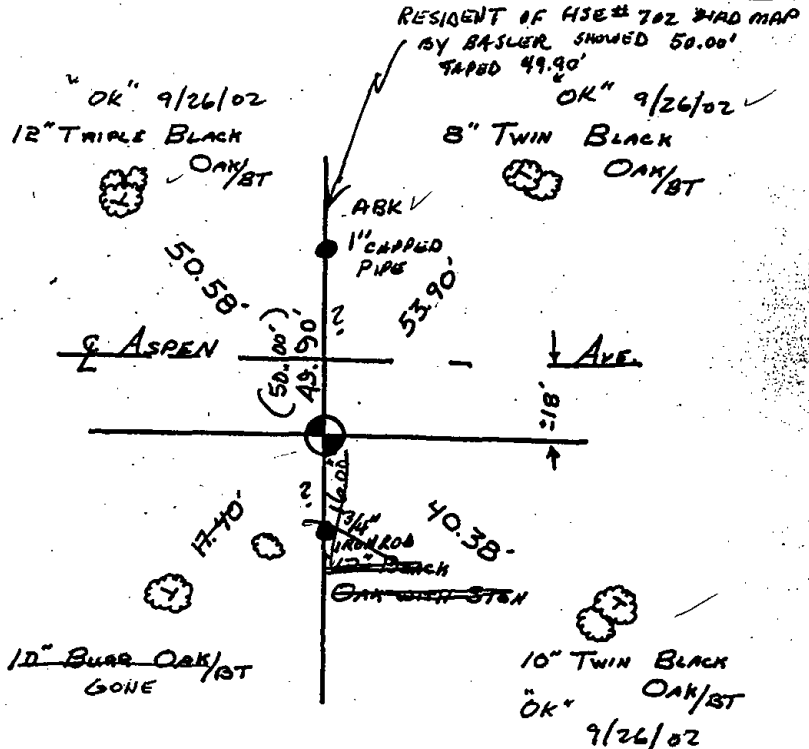 RESIDENT OF HSE# 702 HAD MAP
BY BASLER SHOWED 50.00'
TAPED 49.90'
"OK" 9/26/02
12" TRIPLE BLACK
OAK/BT
"OK" 9/26/02
8" TWIN BLACK
OAK/BT
ABK
1" CAPPED
PIPE
50.58'
53.90'
(50.00')
49.90'
?
℄ ASPEN AVE.
±18'
?
16.00'
17.40'
3/4"
IRON ROD
12" BLACK
OAK WITH SIGN
40.38'
10" BURR OAK/BT
GONE
10" TWIN BLACK
OAK/BT
"OK"
9/26/02